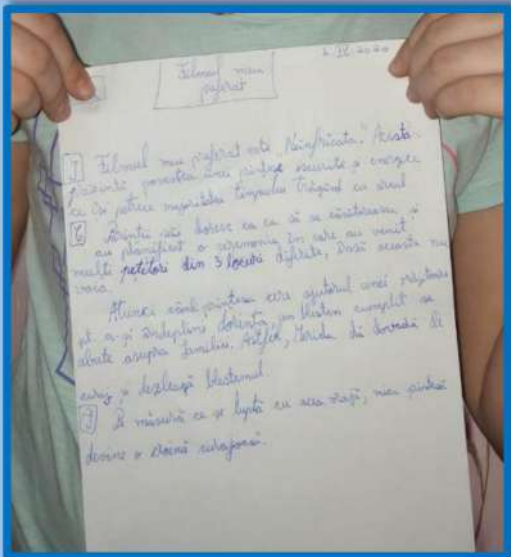 2 IV 2020
Filmul meu
preferat
I Filmul meu preferat este "Neînfricata." Acesta
prezintă povestea unei prințese istețe și energice
ce își petrece majoritatea timpului trăgând cu arcul
C Părinții săi doresc ca ea să se căsătorească, și
au planificat o ceremonie în care au venit
mulți pețitori din 3 locuri diferite, însă aceasta nu
vrea.
Atunci când prințesa cere ajutorul unei vrăjitoare
pt. a-și îndeplini dorința, un blestem cumplit se
abate asupra familiei. Astfel, Merida dă dovadă de
curaj și dezleagă blestemul.
Î Pe măsură ce se luptă cu acea vrajă, mica prințesă
devine o eroină curajoasă.